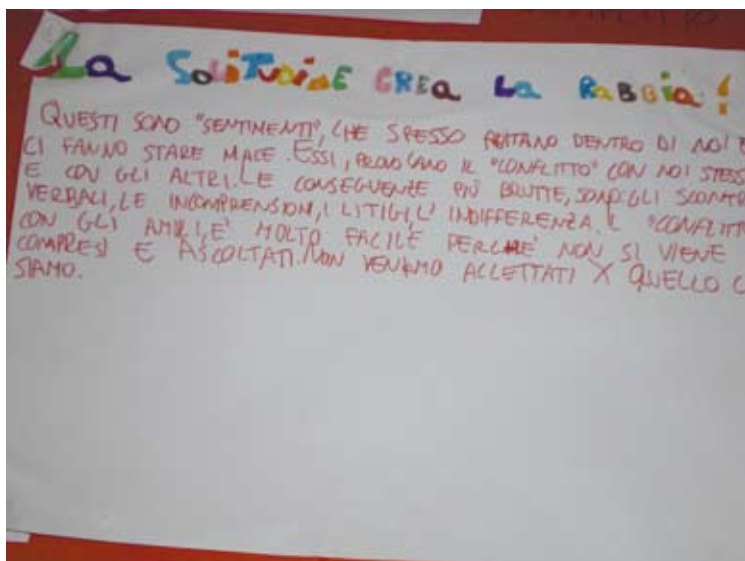 La SoLiTudinE CREa La RaBBia!
QUESTI SONO "SENTIMENTI", CHE SPESSO ABITANO DENTRO DI NOI E
CI FANNO STARE MALE. ESSI, PROVOCANO IL "CONFLITTO" CON NOI STESS
E CON GLI ALTRI. LE CONSEGUENZE PIÙ BRUTTE, SONO: GLI SCONTR
VERBALI, LE INCOMPRENSION, I LITIGI, L'INDIFFERENZA. IL "CONFLITTO
CON GLI AMICI, E' MOLTO FACILE PERCHE' NON SI VIENE
COMPRESI E ASCOLTATI. NON VENIAMO ACCETTATI X QUELLO C
SIAMO.